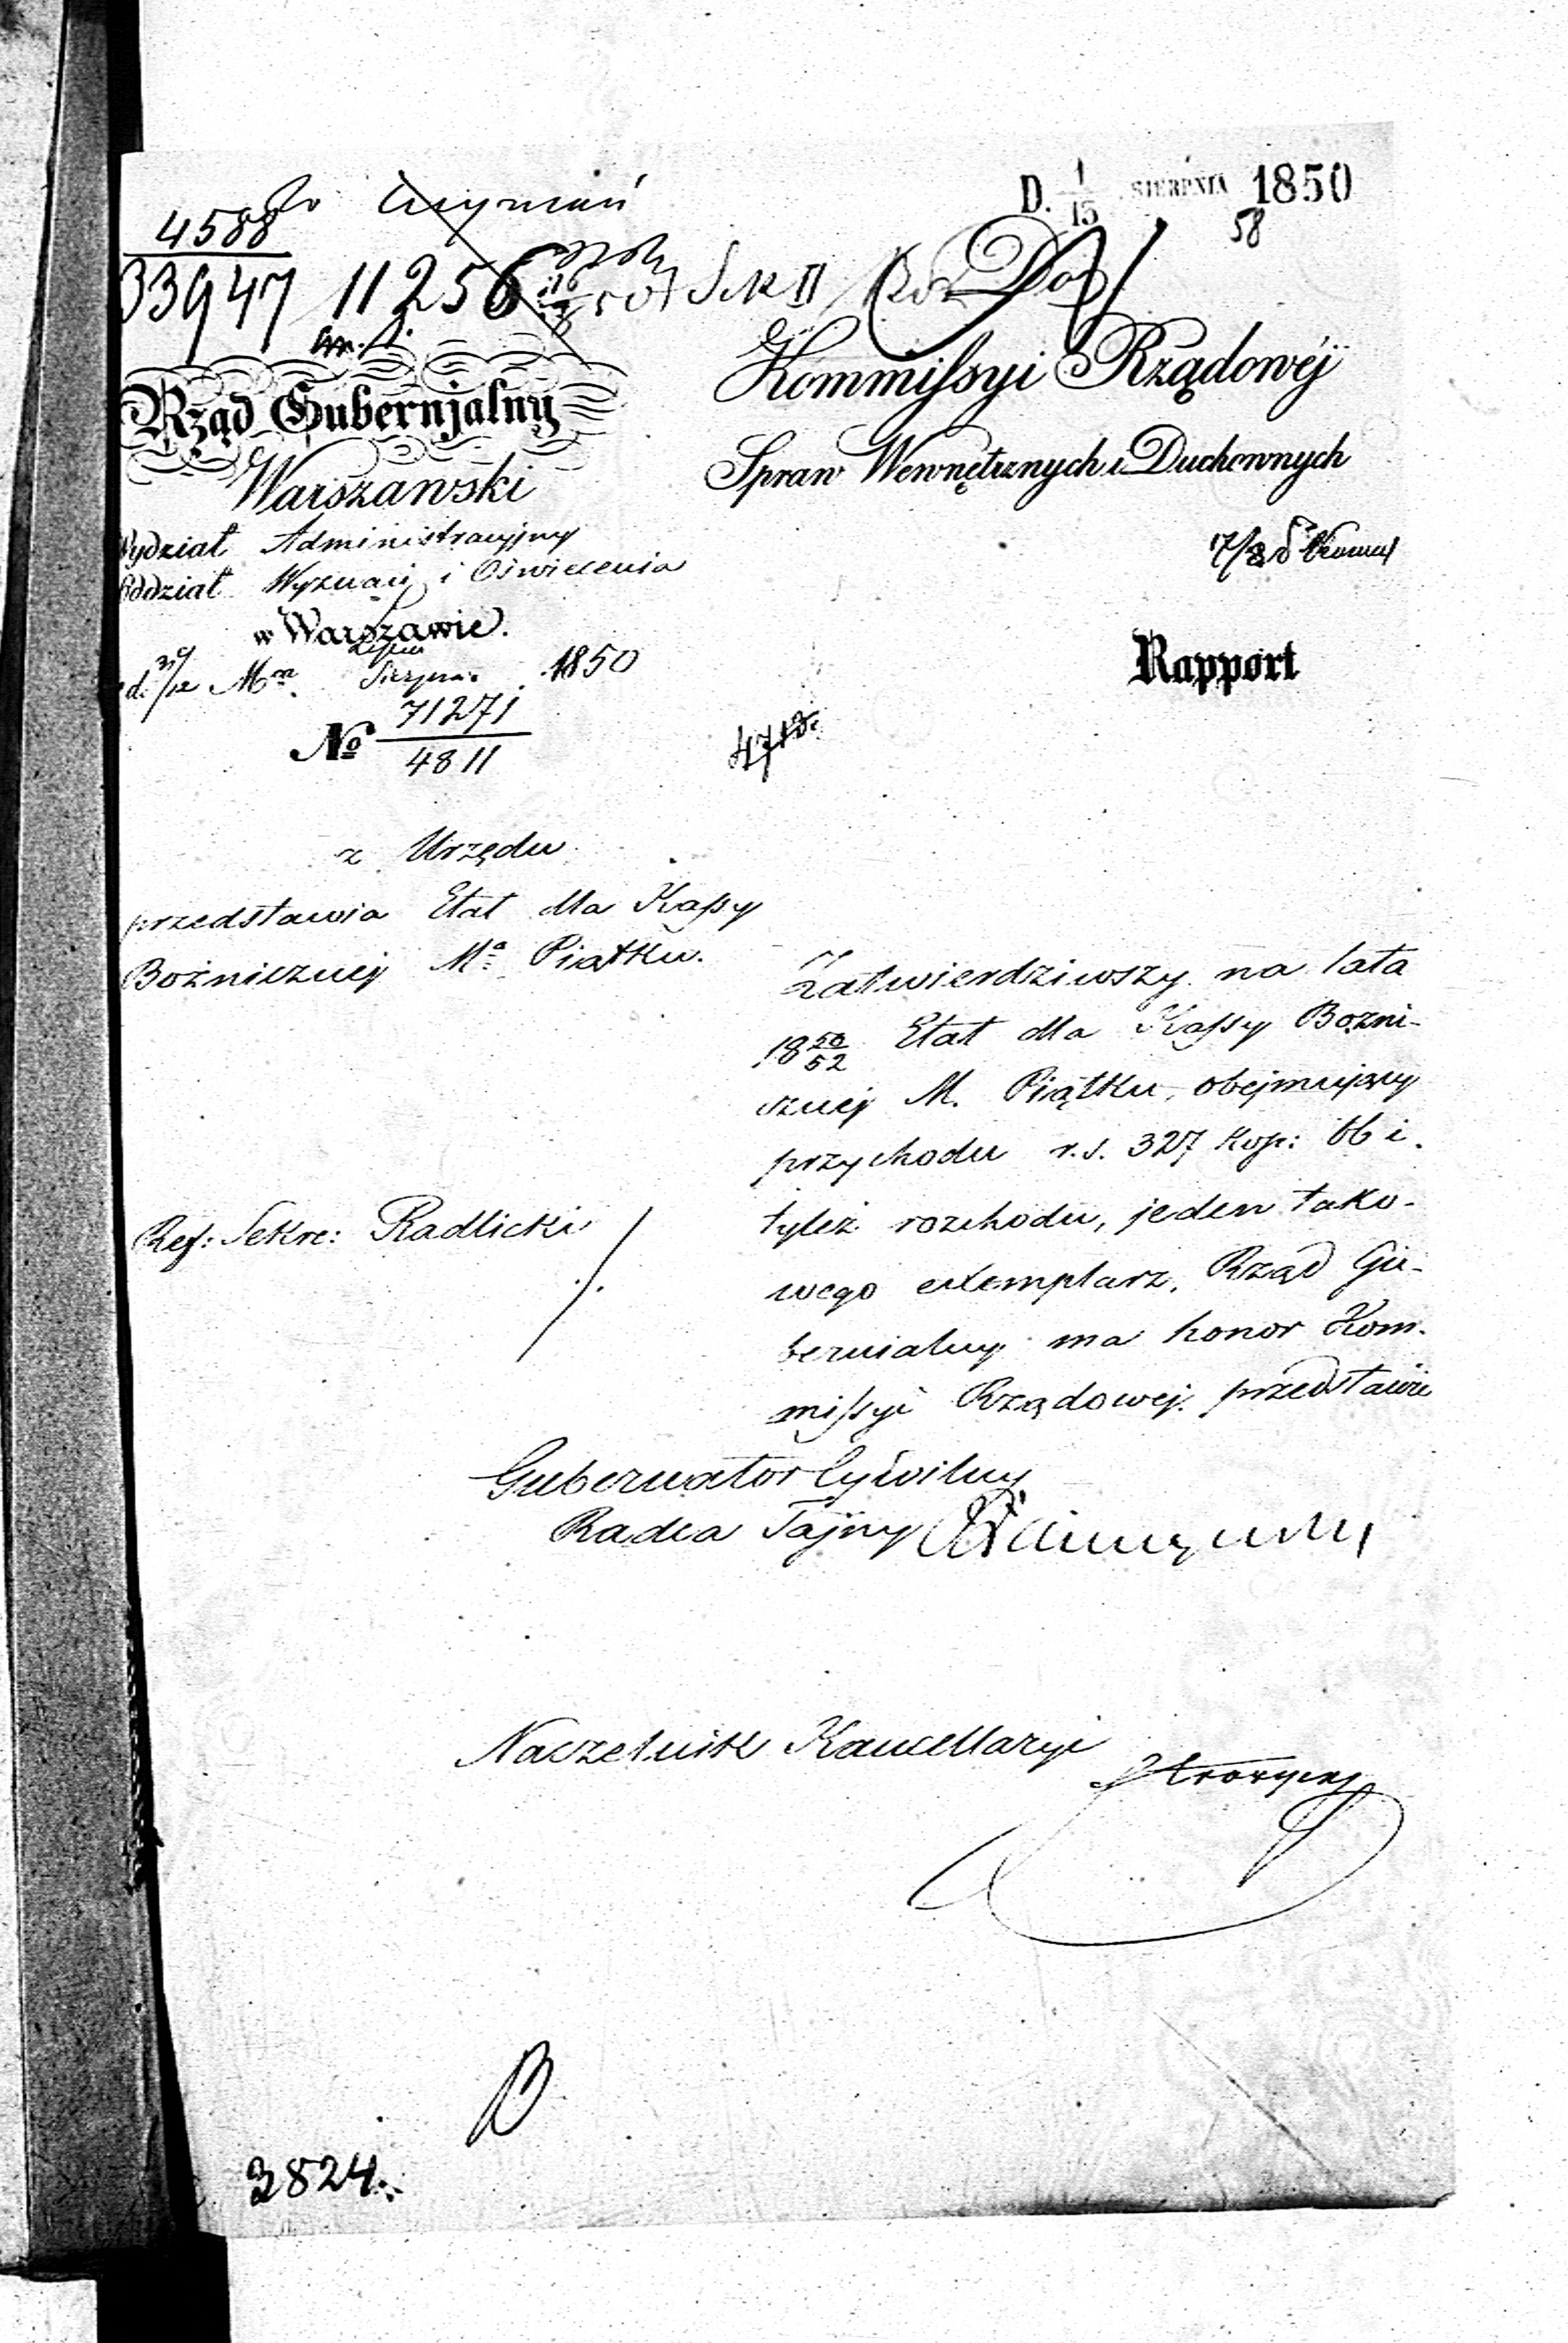 D. 1/15 SIERPNIA 1850
58
4588
33947 11256
Rząd Gubernjalny
Warszawski
Wydział Administracyjny
Oddział Wyznań i Oświecenia
w Warszawie.
d. 31/12 Mca Lipca Sierpnia 1850
No 71271
4811
Do
Kommissyi Rządowéj
Spraw Wewnętrznych i Duchownych
Rapport
z Urzędu
przedstawia Etat dla Kassy
Bożniczney Ma Piątku.
Zatwierdziwszy na lata
1850/52 Etat dla Kassy Bożni-
czney M. Piątku, obejmujący
przychodu r.s. 327 kop: 66 i
tyleż rozchodu, jeden tako-
wego exemplarz, Rząd Gu-
bernialny ma honor Kom-
missyi Rządowej przedstawić
Ref: Sekre: Radlicki
Gubernator Cywilny
Radca Tajny
Naczelnik Kancellaryi
3824.